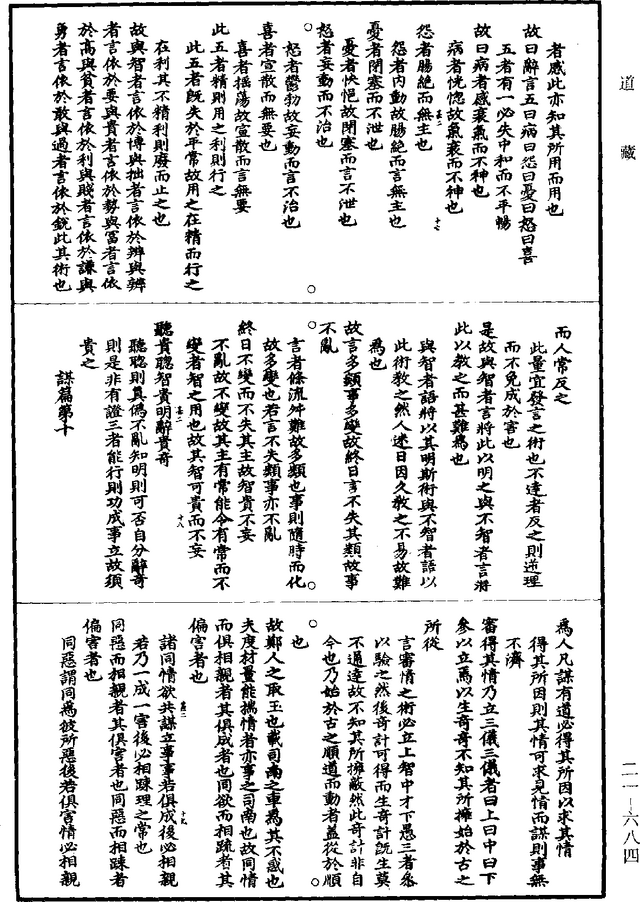 道藏
者感此亦知其所用而用也
故曰辭言五曰病曰怨曰憂曰怒曰喜
五者有一必失中和而不平暢
故曰病者感衰氣而不神也
病者恍惚故氣衰而不神也
怨者腸絕而無主也
怨者内動故腸絕而言無主也
憂者閉塞而不泄也
憂者怏悒故閉塞而言不泄也
怒者妄動而不治也
怒者鬱勃故妄動而言不治也
喜者宣散而無要也
喜者摇蕩故宣散而言無要
此五者精則用之利則行之
此五者既失於平常故用之在精而行之
在利其不精利則廢而止之也
故與智者言依於博與拙者言依於辨與辨
者言依於要與貴者言依於勢與富者言依
於高與貧者言依於利與賤者言依於謙與
勇者言依於敢與過者言依於銳此其術也
而人常反之
此量宜發言之術也不達者反之則逆理
而不免成於害也
是故與智者言將此以明之與不智者言將
此以教之而甚難為也
與智者語將以其明斯術與不智者語以
此術教之然人迷日因久教之不易故難
為也
故言多類事多變故終日言不失其類故事
不亂
言者條流舛難故多類也事則隨時而化
故多變也若言不失類事亦不亂
終日不變而不失其主故智貴不妄
不亂故不變故其主有常能令有常而不
變者智之用也故其智可貴而不妄
聽貴聰智貴明辭貴奇
聽聰則真偽不亂知明則可否自分辭奇
則是非有證三者能行則功成事立故須
貴之
謀篇第十
為人凡謀有道必得其所因以求其情
得其所因則其情可求見情而謀則事無
不濟
審得其情乃立三儀三儀者曰上曰中曰下
參以立焉以生奇奇不知其所擁始於古之
所從
言審情之術必立上智中才下愚三者叅
以驗之然後奇計可得而生奇計既生莫
不通達故不知其所擁蔽然此奇計非自
今也乃始於古之順道而動者蓋從於順
也
故鄭人之取玉也載司南之車為其不惑也
夫度材量能揣情者亦事之司南也故同情
而俱相親者其俱成者也同欲而相疏者其
偏害者也
諸同情欲共謀立事事若俱成後必相親
若乃一成一害後必相踈理之常也
同惡而相親者其俱害者也同惡而相踈者
偏害者也
同惡謂同爲彼所惡後若俱害情必相親
二一－六八四